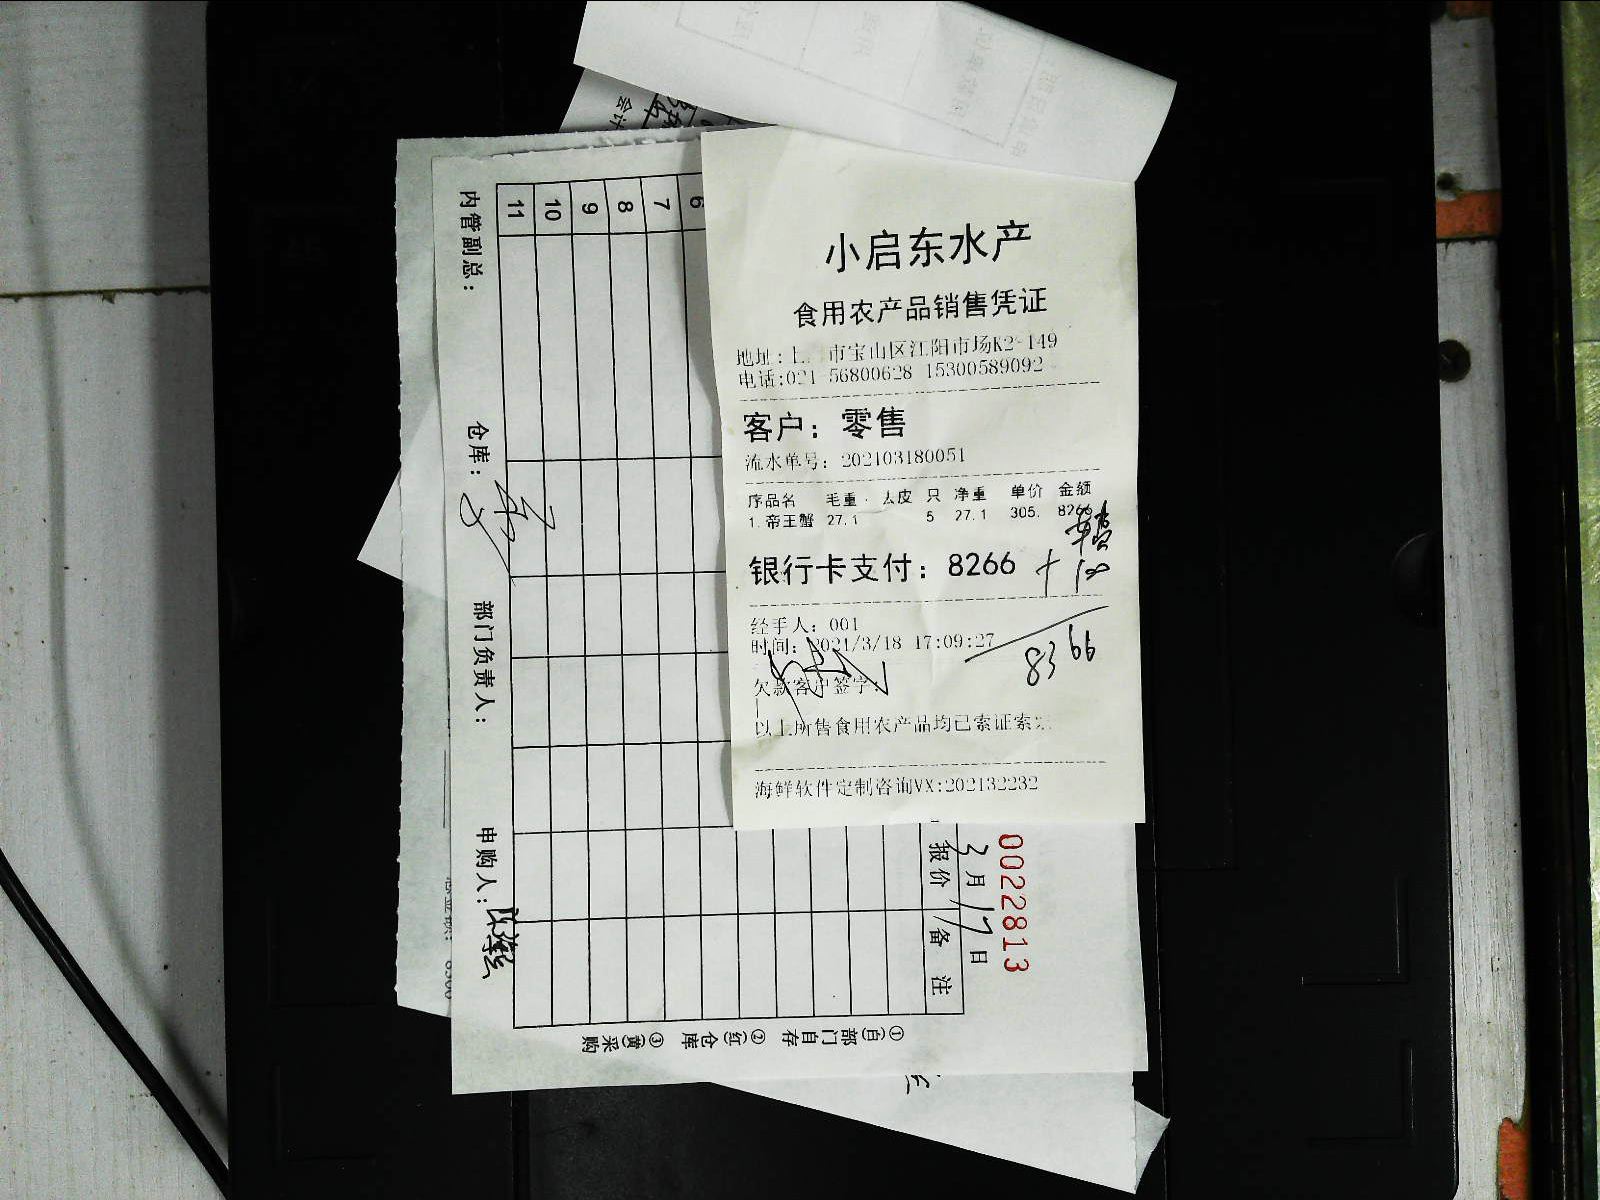 小启东水产
食用农产品销售凭证
地址:上 市宝山区江阳市场K2-149
电话:021-56800628 15300589092
客户：零售
流水单号：202103180051
序品名 毛重 去皮 只 净重 单价 金额
1.帝王蟹 27.1 5 27.1 305. 8266
银行卡支付：8266 + 100
车费
8366
经手人：001
时间：2021/3/18 17:09:27
欠款客户签字：
以上所售食用农产品均已索证索
海鲜软件定制咨询VX:202132232
0022813
3月17日
报价 备注
6
7
8
9
10
11
内管副总：
仓库：
部门负责人：
申购人：
①(白)部门自存 ②(红)仓库 ③(黄)采购
会计